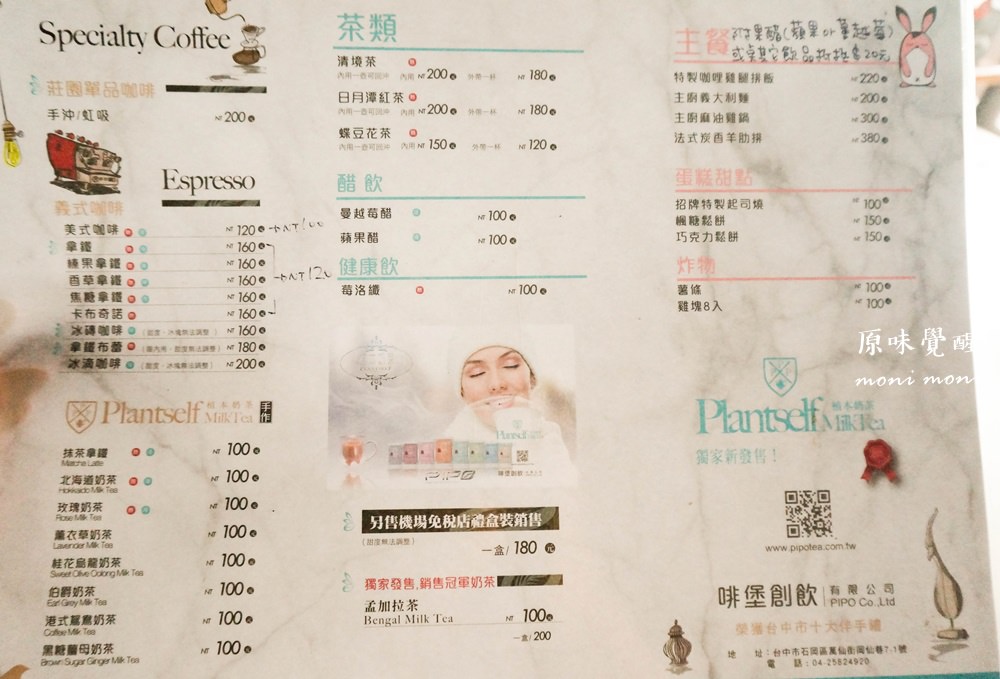 Specialty Coffee
莊園單品咖啡
手沖/虹吸 NT 200元
Espresso
義式咖啡
美式咖啡 熱 冰 NT 120元 NT100
拿鐵 熱 冰 NT 160元
榛果拿鐵 熱 冰 NT 160元
香草拿鐵 熱 冰 NT 160元
焦糖拿鐵 熱 冰 NT 160元
卡布奇諾 熱 NT 160元
NT120
冰磚咖啡 冰 (甜度、冰塊無法調整) NT 160元
拿鐵布蕾 冰 (限內用、甜度無法調整) NT 180元
冰滴咖啡 冰 (甜度、冰塊無法調整) NT 200元
Plantself 植本奶茶 MilkTea 手作
抹茶拿鐵 熱 冰 NT 100元
Matcha Latte
北海道奶茶 熱 冰 NT 100元
Hokkaido Milk Tea
玫瑰奶茶 熱 冰 NT 100元
Rose Milk Tea
薰衣草奶茶 NT 100元
Lavender Milk Tea
桂花烏龍奶茶 NT 100元
Sweet Olive Oolong Milk Tea
伯爵奶茶 NT 100元
Earl Grey Milk Tea
港式鴛鴦奶茶 NT 100元
Coffee Milk Tea
黑糖薑母奶茶 NT 100元
Brown Sugar Ginger Milk Tea
茶類
清境茶 熱
內用一壺可回沖 內用 NT 200元 外帶一杯 NT 180元
日月潭紅茶 熱
內用一壺可回沖 內用 NT 200元 外帶一杯 NT 180元
蝶豆花茶 熱
內用一壺可回沖 內用 NT 150元 外帶一杯 NT 120元
醋飲
曼越莓醋 冰 NT 100元
蘋果醋 冰 NT 100元
健康飲
莓洛纖 熱 NT 100元
Plantself
PIPO
另售機場免稅店禮盒裝銷售
(甜度無法調整)
一盒/ 180 元
獨家發售,銷售冠軍奶茶
孟加拉茶
Bengal Milk Tea NT 100元
一盒/200
主餐 附果醋(蘋果or蔓越莓)
或桌其它飲品折抵20元
特製咖哩雞腿排飯 NT 220元
主廚義大利麵 NT 200元
主廚麻油雞鍋 NT 300元
法式炭香羊肋排 NT 380元
蛋糕甜點
招牌特製起司燒 NT 100元
楓糖鬆餅 NT 150元
巧克力鬆餅 NT 150元
炸物
薯條 NT 100元
雞塊8入 NT 100元
原味覺醒
moni mon
Plantself 植本奶茶 MilkTea
獨家新發售!
www.pipotea.com.tw
啡堡創飲 有限公司 PIPO Co.,Ltd
榮獲台中市十大伴手禮
地 址:台中市石岡區萬仙街岡仙巷7-1號
電 話:04-25824920